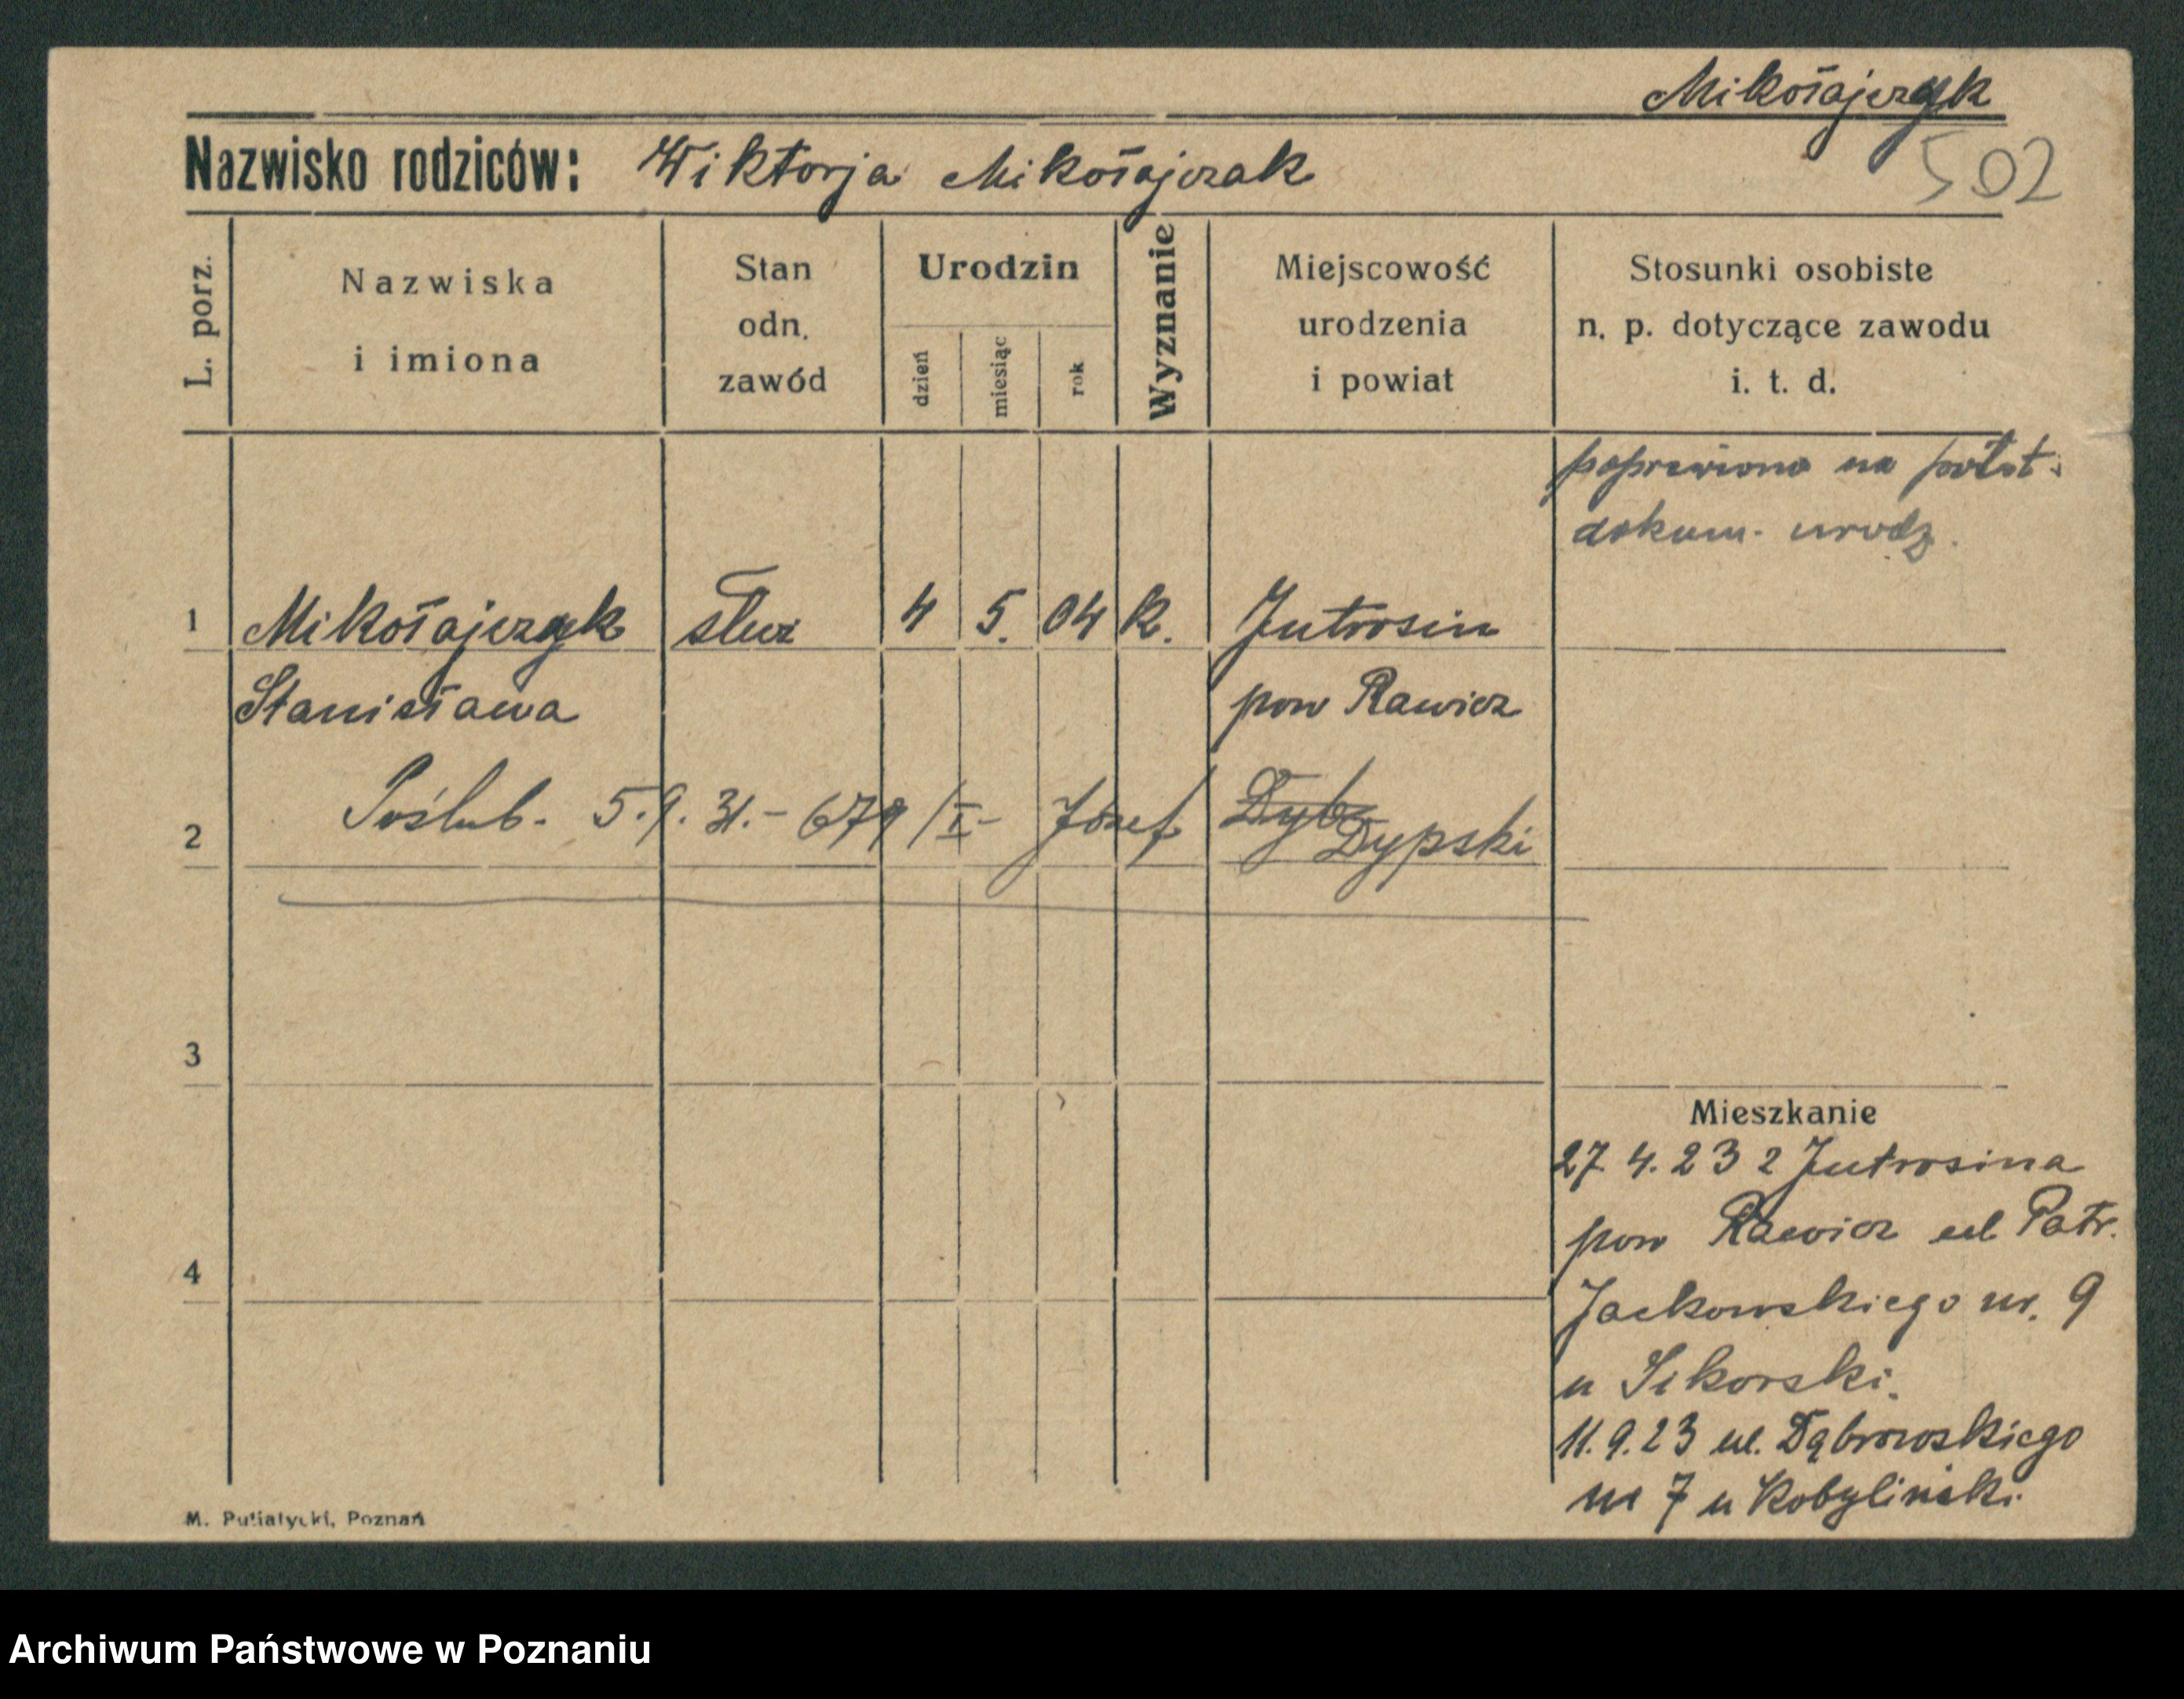 Mikołajczyk
Nazwisko rodziców: Wiktorja Mikołajczak
502
L. porz.
Nazwiska
i imiona
Stan
odn.
zawód
Urodzin
dzień
miesiąc
rok
Wyznanie
Miejscowość
urodzenia
i powiat
Stosunki osobiste
n. p. dotyczące zawodu
i. t. d.
poprawiono na
dokum. urodz.
1 Mikołajczyk służ 4 5. 04 K. Jutrosin
Stanisława pow Rawicz
2 Poślub. 5.9.31.- 679/I- Józef Dyb Dypski
3
Mieszkanie
27.4.23 z Jutrosina
pow Rawicz ul Patr.
4
Jackowskiego nr. 9
u Sikorski.
11.9.23 ul. Dąbrowskiego
nr 7 u Kobyliński.
M. Putiatycki, Poznań
Archiwum Państwowe w Poznaniu